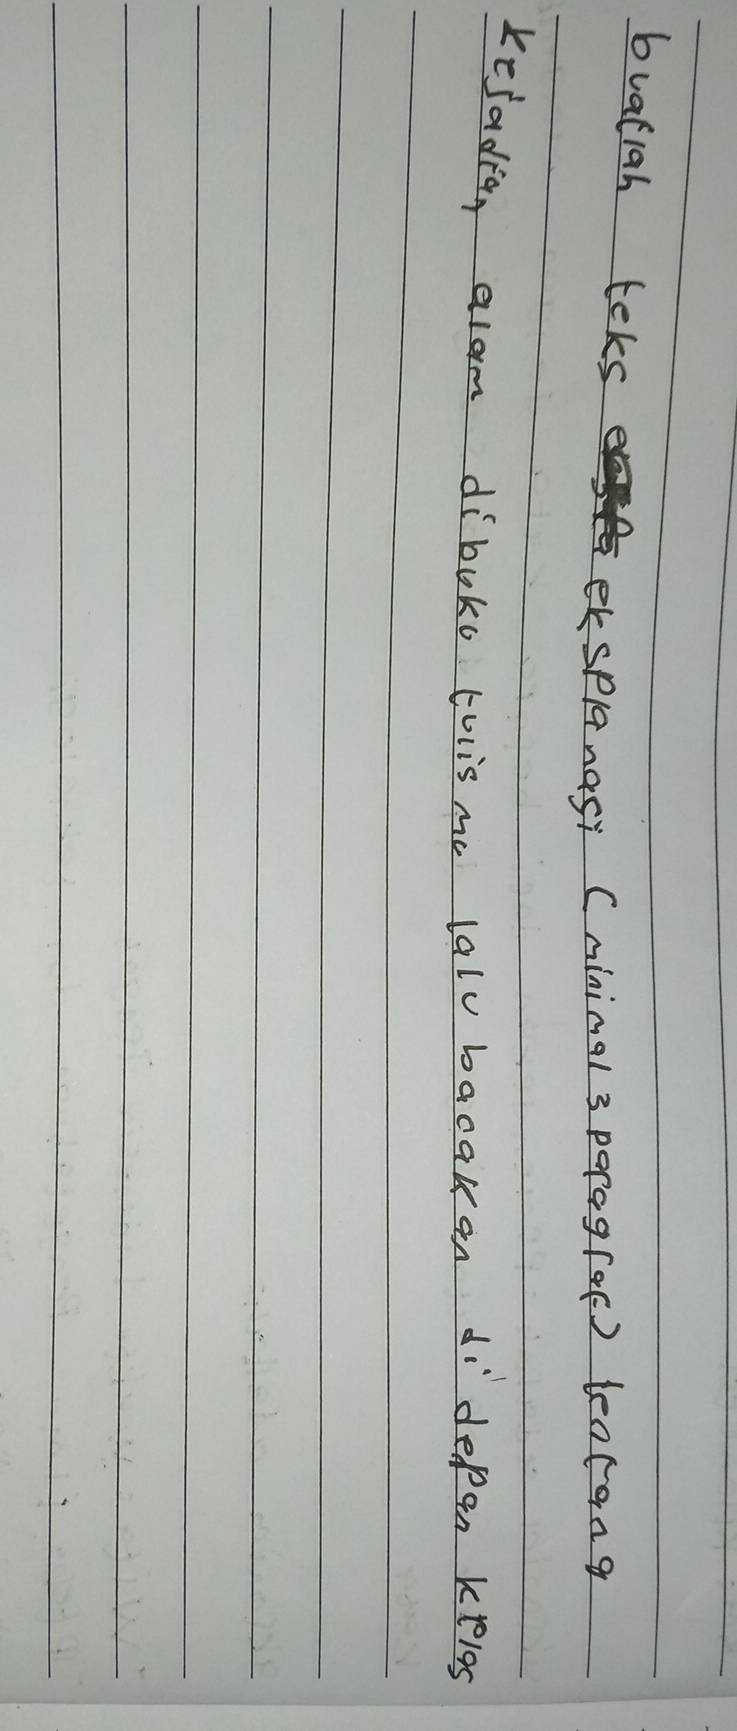 buatlah teks eksplanasi (minimal 3 paragraf) tentang
kejadian alam dibuku tulis mu lalu bacakan di depan kelas